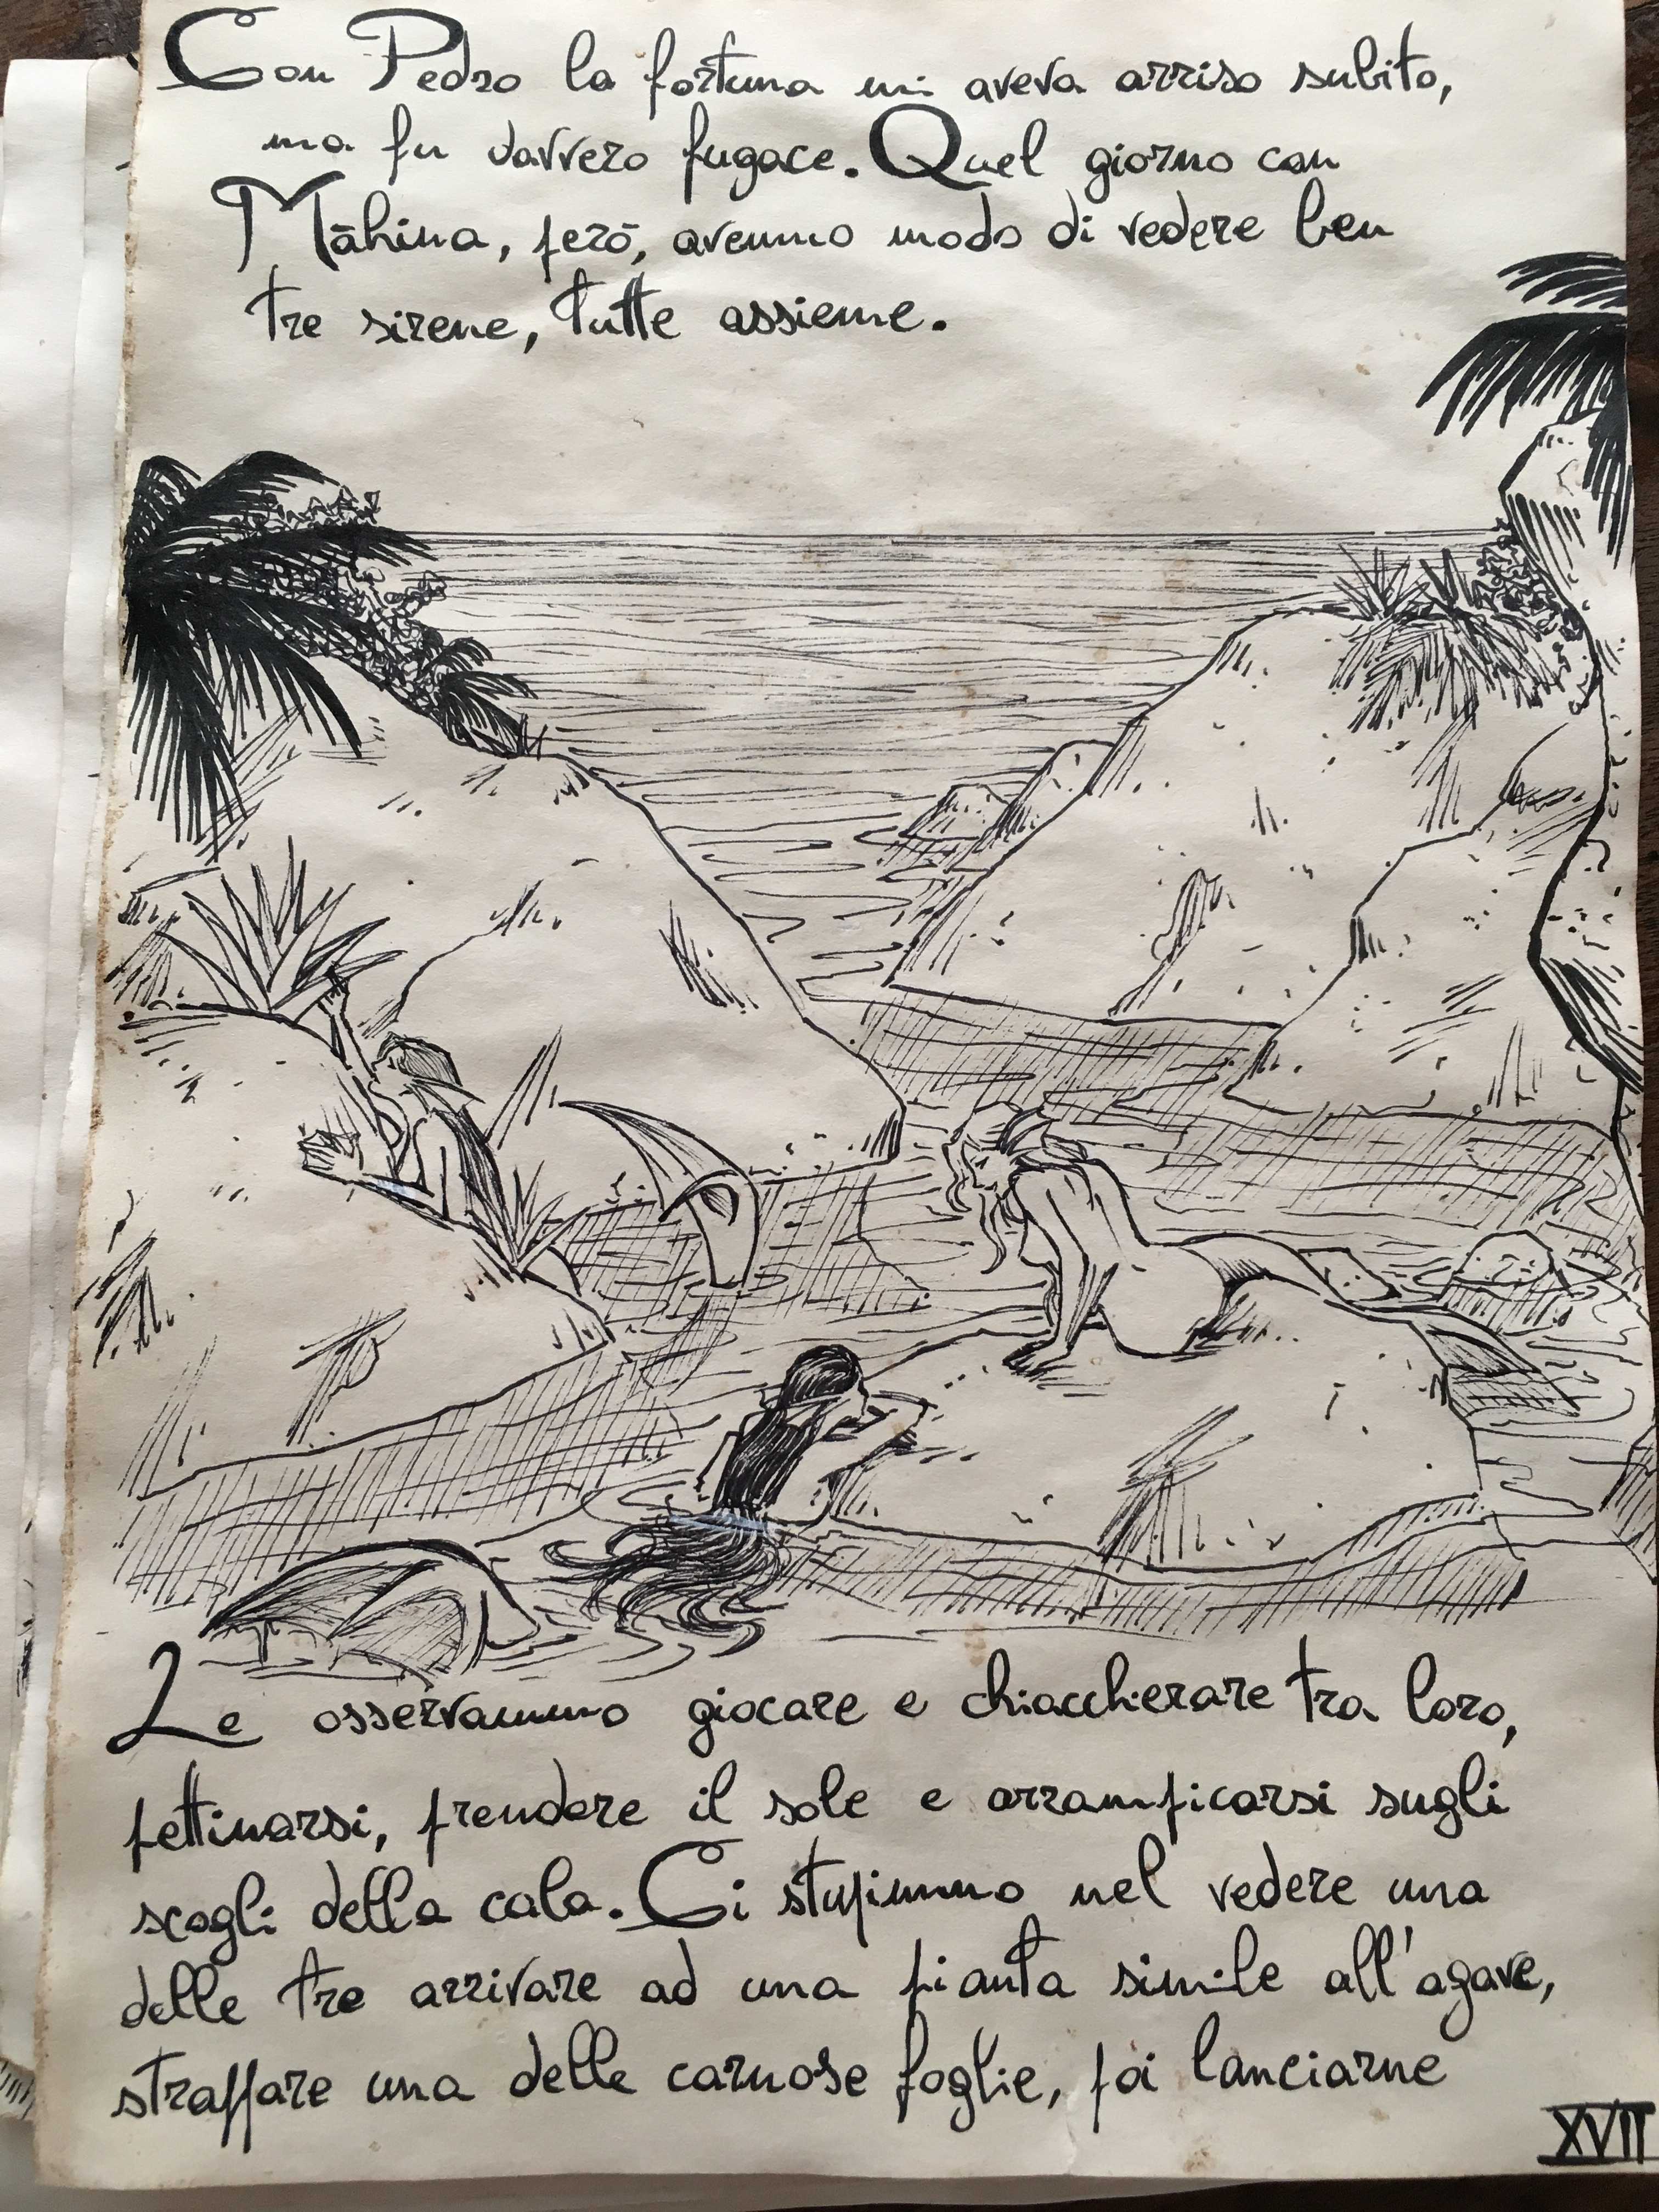 Con Pedro la fortuna mi aveva arriso subito,
ma fu davvero fugace. Quel giorno con
Māhina, però, avemmo modo di vedere ben
tre sirene, tutte assieme.
Le osservammo giocare e chiacchierare tra loro,
pettinarsi, prendere il sole e arrampicarsi sugli
scogli della cala. Ci stupimmo nel vedere una
delle tre arrivare ad una pianta simile all'agave,
strappare una delle carnose foglie, poi lanciarne
XVII